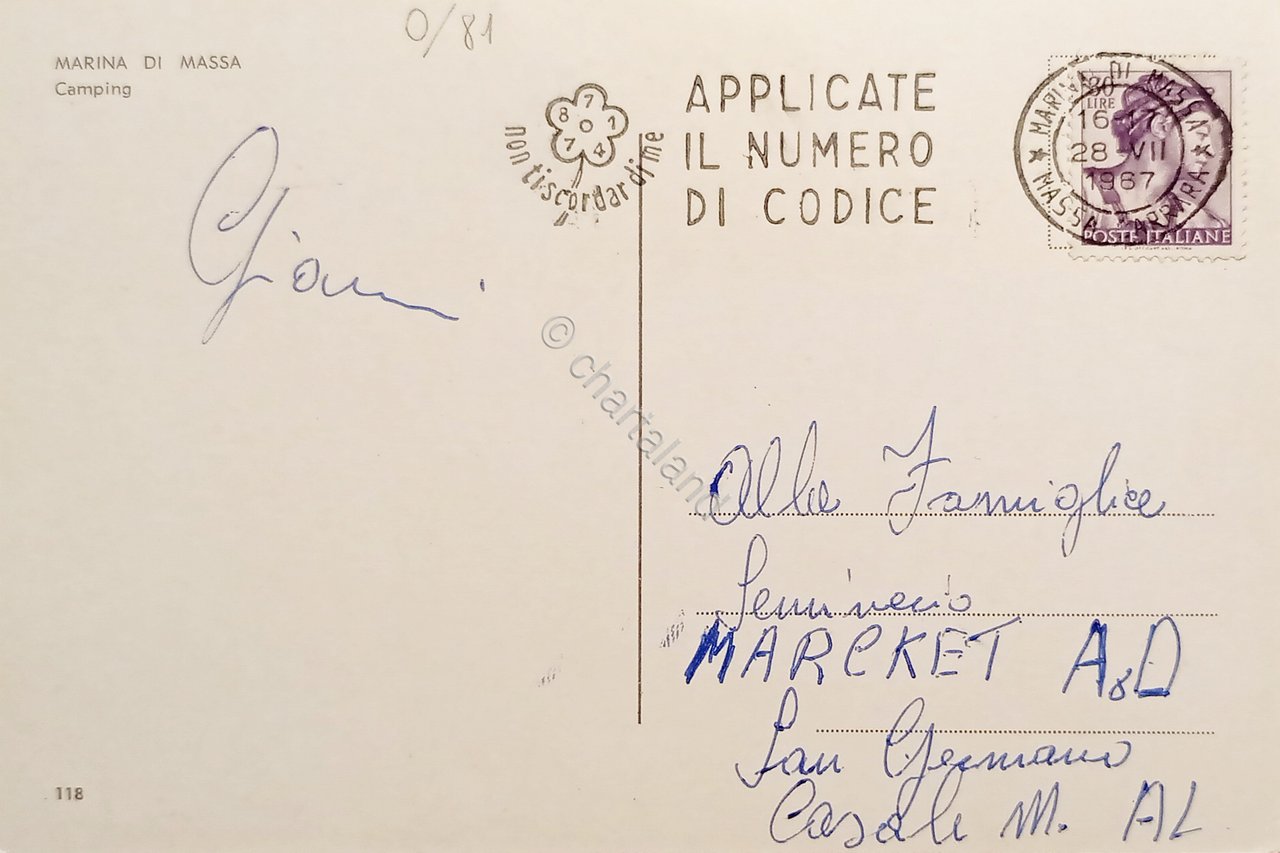 0/81
MARINA DI MASSA
Camping
Gianni
8 7 1 4 7 0
non ti scordar di me
APPLICATE
IL NUMERO
DI CODICE
30
LIRE
* MARINA DI MASSA *
MASSA CARRARA
16-17
28-VII
1967
POSTE ITALIANE
© chartaland
Alla Famiglia
Seminerio
MARCKET A&D
San Germano
Casale M. AL
118